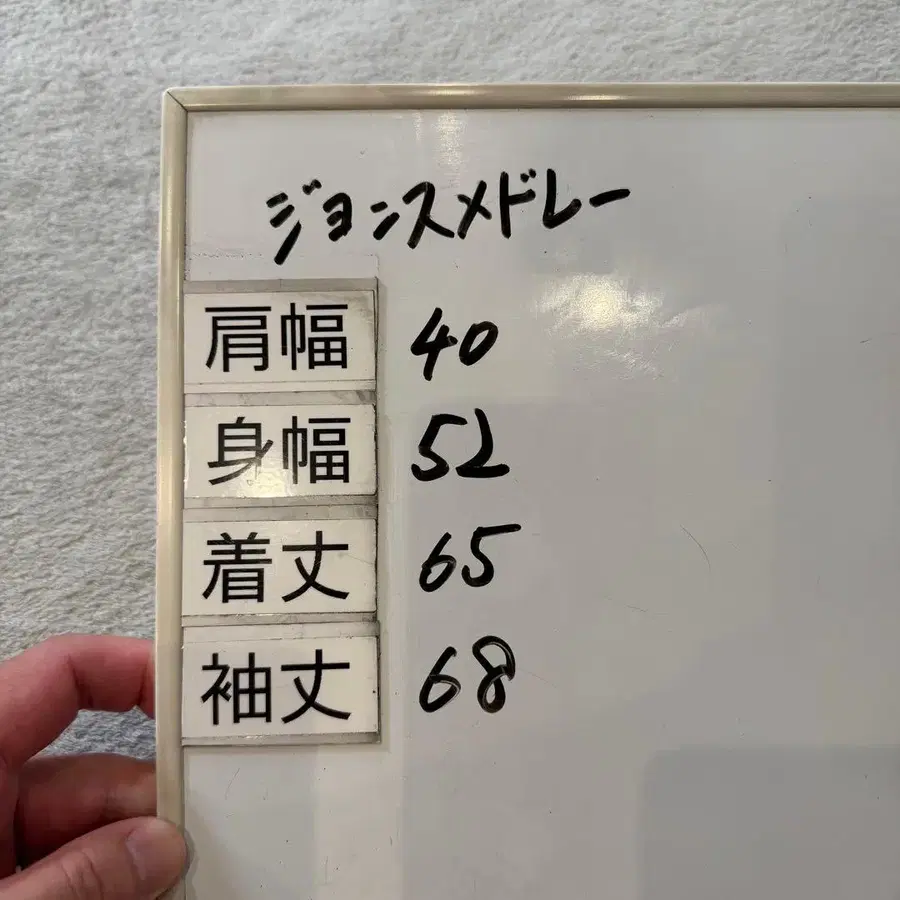 ジョンスメドレー
肩幅 40
身幅 52
着丈 65
袖丈 68